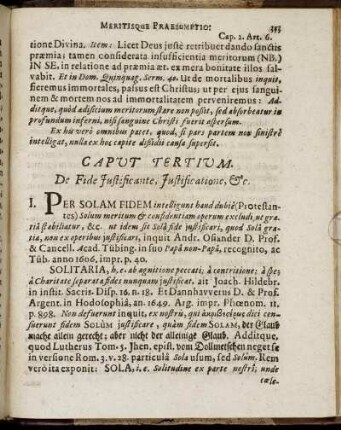 MERITISQUE PRAESUMPTIO: 393
Cap. 2. Art. 6.
tione Divina. Item: Licet Deus justè retribuer dando sanctis
præmia; tamen considerata insufficientia meritorum (NB.)
IN SE, in relatione ad præmia æt. ex mera bonitate illos sal-
vabit. Et in Dom. Quinquag. Serm. 40. Ut de mortalibus inquit,
fieremus immortales, passus est Christus; ut per ejus sangui-
inem & mortem nos ad immortalitatem perveniremus: Ad-
ditque, quòd ad ificium nostrum stare non possit, sed absorbeatur in
profundum inferni, nisi sanguine Christi fuerit aspersum.
Ex his verò omnibus patet, quod, si pars partem non sinistrè
intelligat, nulla ex hoc capite dissidii causa supersit.
CAPUT TERTIUM.
De Fide Justificante, Justificatione, &c.
I. PER SOLAM FIDEM intelligunt haud dubiè (Protestan-
tes) Solum meritum & confidentiam operum excludi, ut gra-
tiâ stabiliatur, &c. ut idem sit Solâ fide justificari, quod Solâ gra-
tiâ, non ex operibus justificari, inquit Andr. Osiander D. Prof.
& Cancell. Acad. Tübing. in suo Papâ non-Papâ, recognito, ac
Tüb. anno 1606. impr. p. 40.
SOLITARIA, h. e. ab aguitione peccati, à contritione; à spe,
à Charitate separata fides nunquam justificat. ait Joach. Hildebr.
in instit. Sacris. Disp. 16. n. 18. Et Dannhavverus D. & Prof.
Argent. in Hodosophiâ, an. 1649. Arg. impr. Phœnom. 11.
p. 898. Non defuerunt inquit, ex nostris, qui dici cen-
suerunt fidem SOLUM justificare, quàm fidem SOLAM, der Glaub
mache allein gerecht; aber nicht der alleinige Glaub. Additque,
quod Lutherus Tom. 5. Jhen. epist. vom Dollmetschen neget se
in versione Rom. 3. v. 28. particulâ Sola usum, sed Solùm. Rem
verò ita exponit: SOLA, i. e. Solitudine ex parte nostri, unde